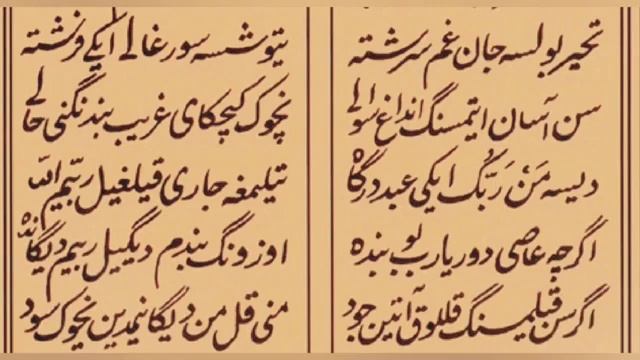 تحیر بولسه جان غم سرشته یتوشسه سورغالی ایکی فرشته
سن آسان ایتمسنگ انداغ سوالی نچوک کیچکای غریب بندنگنی حالی
دیسه مَنْ رَبُّک ایکی عبد درگاه تیلیمغه جاری قیلغیل ربیم الله
اگرچه عاصی دور یارب بو بنده اوزونگ بندم دیگیل ربیم دیگانده
اگر سن قیلمسنگ قللوق آتین جود منی قل من دیگانیمدین نچوک سود